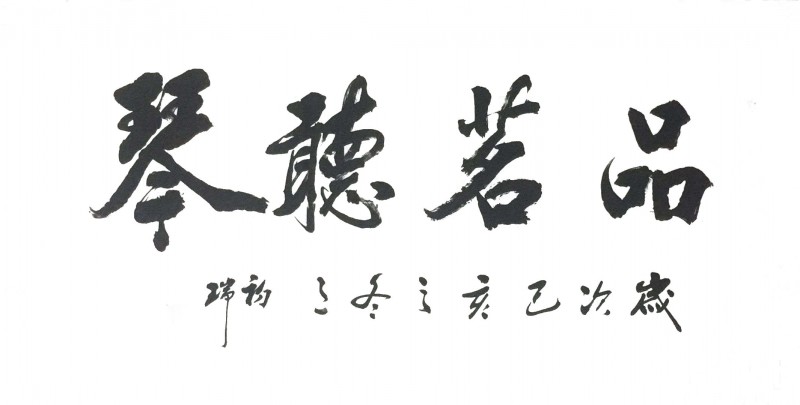 品茗聽琴
歲次己亥之冬之初瑞